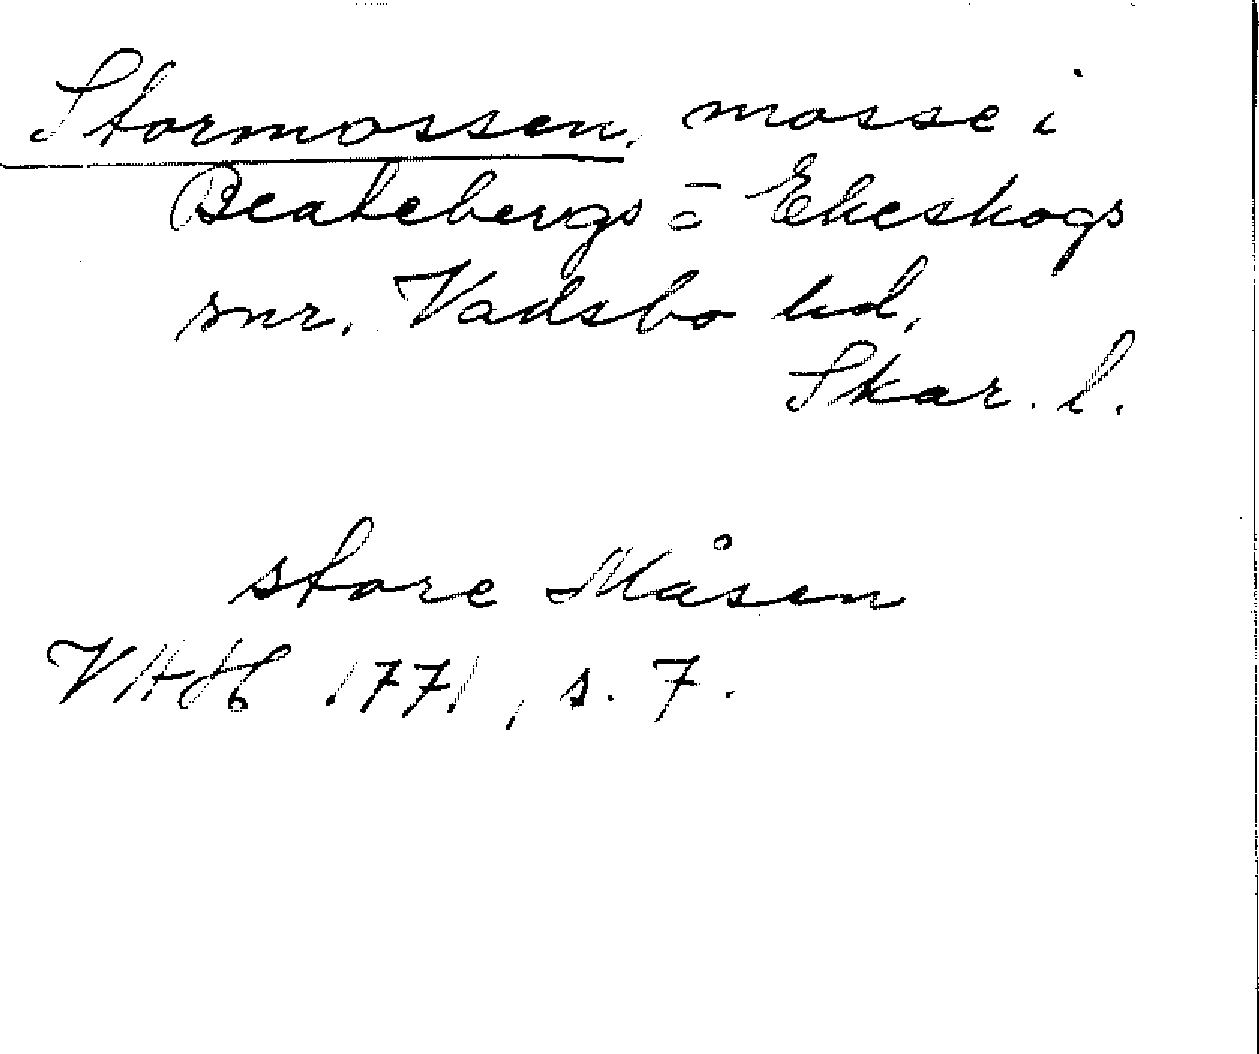 Stormossen, mosse i
Beatebergs o Ekeskogs
snr, Vadsbo hd,
Skar. l.
store Måsen
VHAH 1771, s. 7.